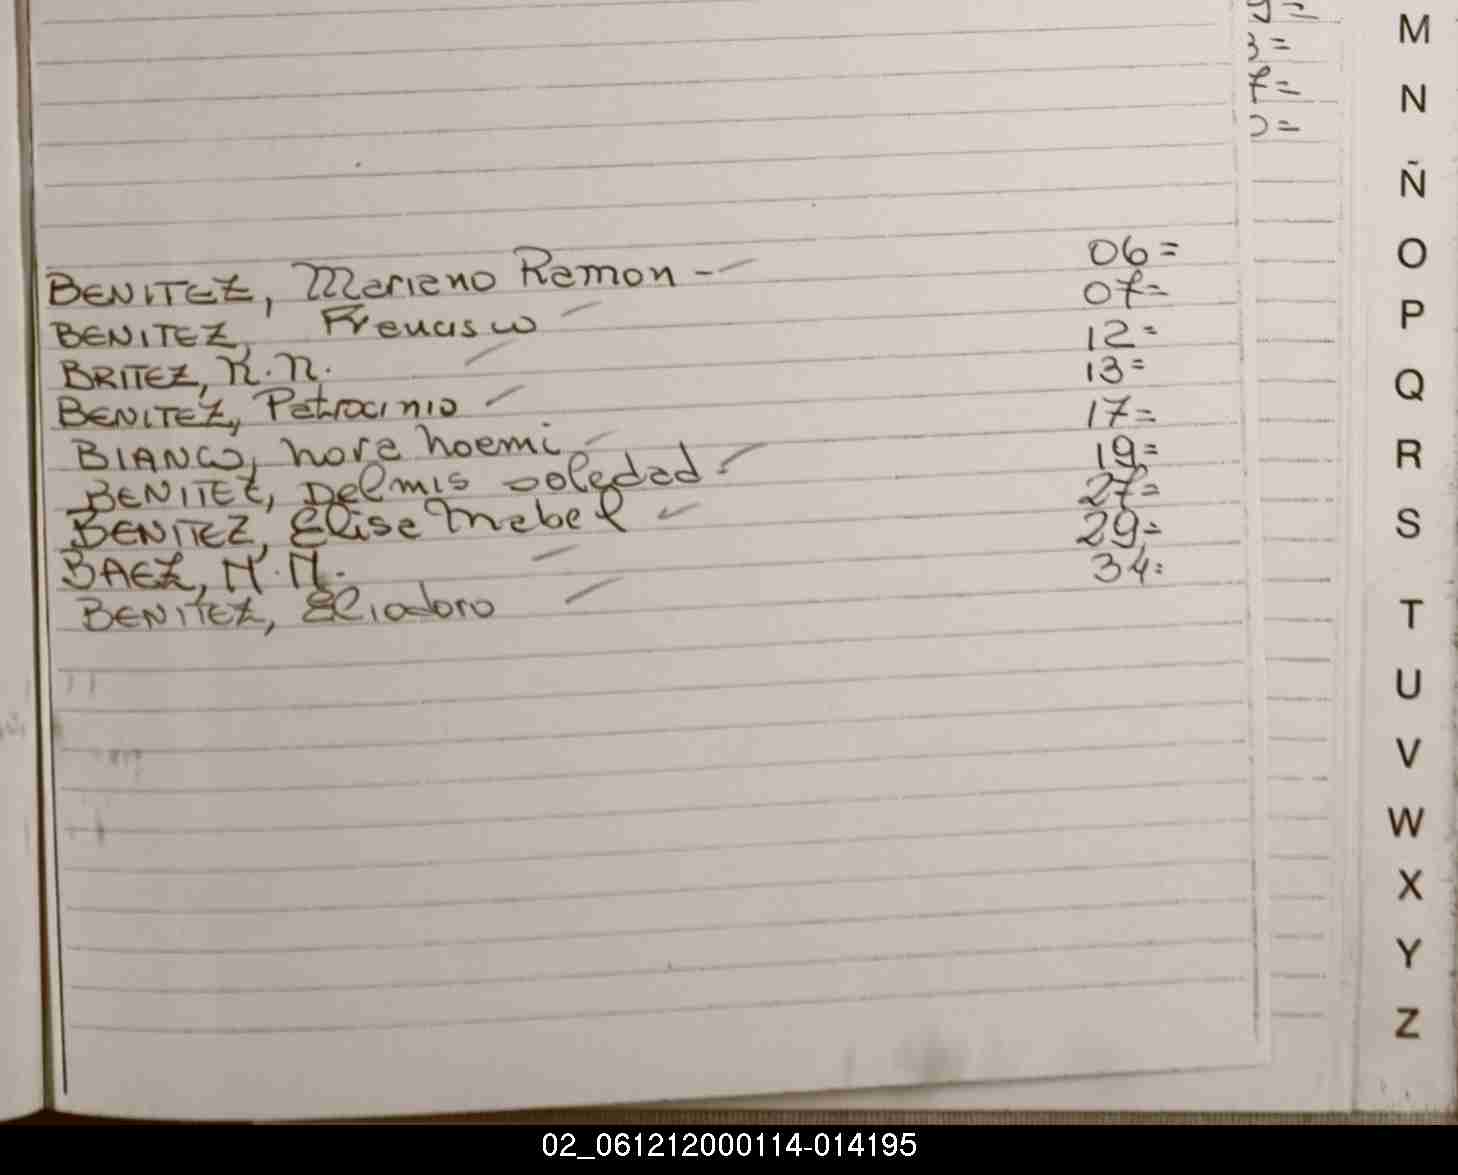 BENITEZ, Mariano Ramon - 06=
BENITEZ, Francisco 07=
BRITEZ, N.N. 12=
BENITEZ, Petrocinio 13=
BIANCO, Nora Noemi 17=
BENITEZ, Delmis Soledad 19=
BENITEZ, Elisa Mabel 27=
BAEZ, N.N. 29=
BENITEZ, Eliodoro 34=
3=
7=
M
N
Ñ
O
P
Q
R
S
T
U
V
W
X
Y
Z
02_061212000114-014195